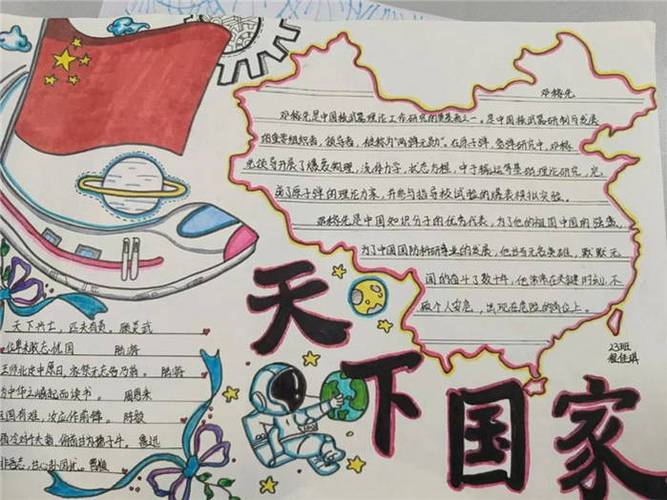 邓稼先
邓稼先是中国核武器理论工作研究的奠基者之一。是中国核武器研制与发展
的重要组织者,领导者,被称为"两弹元勋"。在原子弹、氢弹研究中,邓稼
先领导开展了爆轰物理,流体力学,状态方程,中子输运等基础理论研究,完
成了原子弹的理论方案,并参与指导核试验的爆轰模拟实验。
邓稼先是中国知识分子的优秀代表,为了他的祖国中国的强盛,
为了中国国防科研事业的发展,他当无名英雄,默默无
闻的奋斗了数十年,他常常在关键时刻,不
顾个人安危,出现在危险的岗位上。
23班
天下国家
天下兴亡,匹夫有责 顾炎武
位卑未敢忘忧国 陆游
王师北定中原日,家祭无忘告乃翁。陆游
为中华之崛起而读书。 周恩来
国有难,汝应作前锋。 陈毅
横眉冷对千夫指,俯首甘为孺子牛。鲁迅